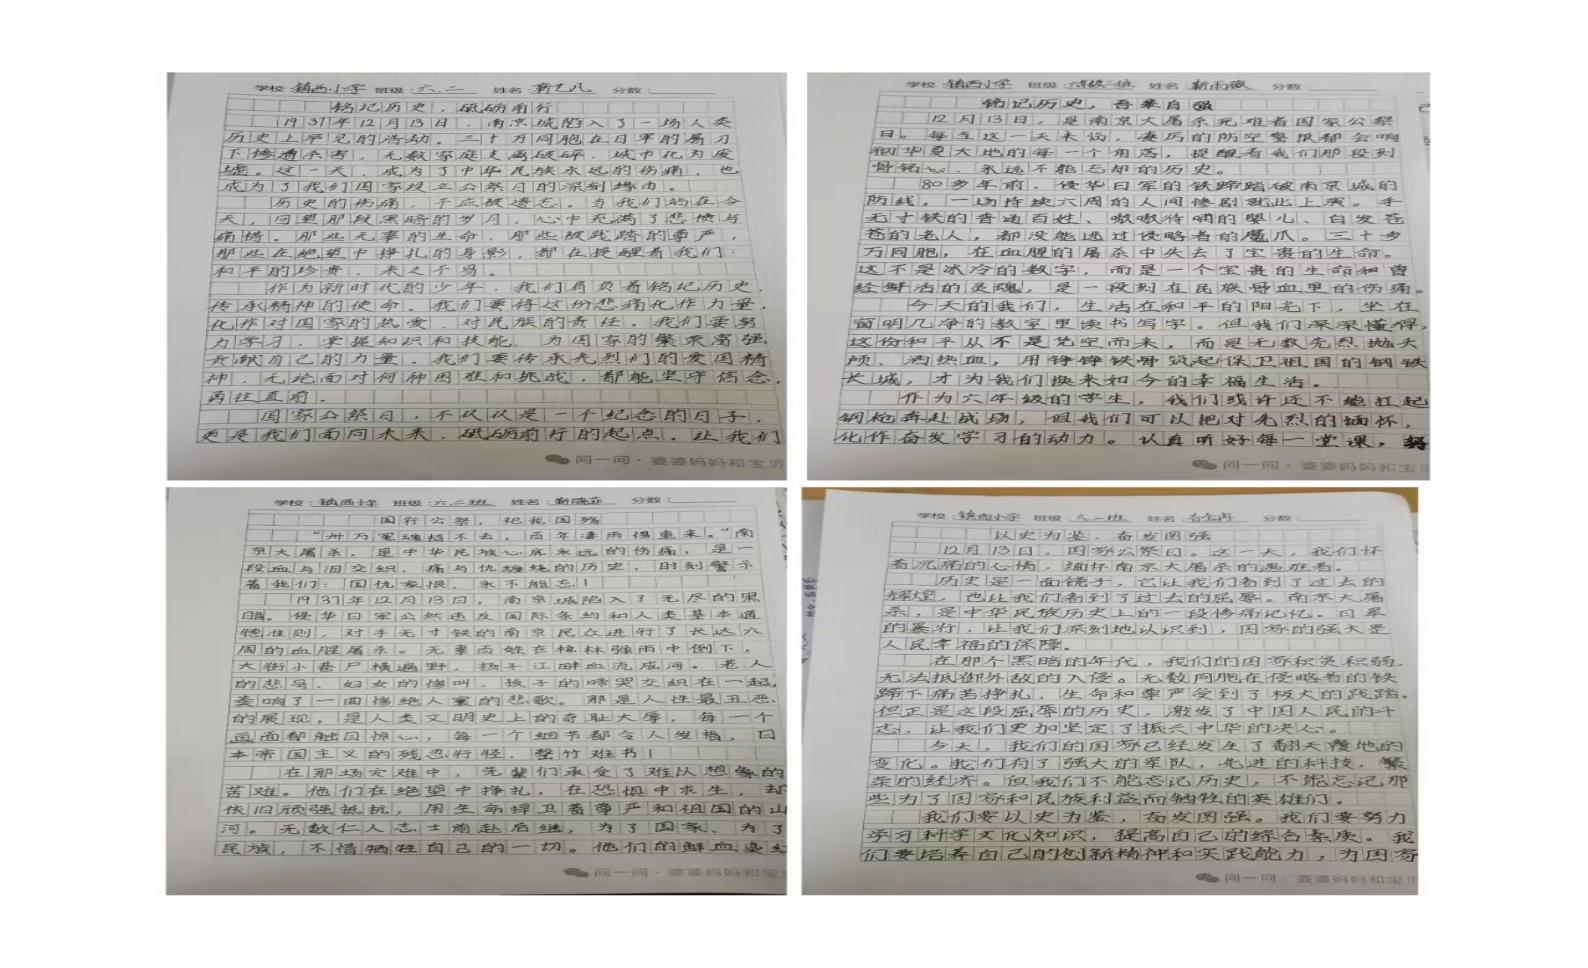 学校：镇西小学 班级：六.二 姓名：靳艺凡 分数：
铭记历史，砥砺前行
1937年12月13日，南京城陷入了一场人类
历史上罕见的浩劫。三十万同胞在日军的屠刀
下惨遭杀害，无数家庭支离破碎，城市化为废
墟。这一天，成为了中华民族永远的伤痛，也
成为了我们国家设立公祭日的深刻缘由。
历史的伤痛，不应被遗忘。当我们站在今
天，回望那段黑暗的岁月，心中充满了悲愤与
痛惜。那些无辜的生命，那些被践踏的尊严，
那些在绝望中挣扎的身影，都在提醒着我们：
和平的珍贵，来之不易。
作为新时代的少年，我们肩负着铭记历史、
传承精神的使命。我们要将这份悲痛化作力量，
化作对国家的热爱、对民族的责任。我们要努
力学习，掌握知识和技能，为国家的繁荣富强
贡献自己的力量。我们要传承先烈们的爱国精
神，无论面对何种困难和挑战，都能坚守信念，
勇往直前。
国家公祭日，不仅仅是一个纪念的日子，
更是我们面向未来、砥砺前行的起点。让我们
问一问·婆婆妈妈和宝贝
学校：镇西小学 班级：六年级二班 姓名：靳雨薇 分数：
铭记历史，吾辈自强
12月13日，是南京大屠杀死难者国家公祭
日。每当这一天来临，凄厉的防空警报都会响
彻华夏大地的每一个角落，提醒着我们那段刻
骨铭心、永远不能忘却的历史。
80多年前，侵华日军的铁蹄踏破南京城的
防线，一场持续六周的人间惨剧就此上演。手
无寸铁的普通百姓、嗷嗷待哺的婴儿、白发苍
苍的老人，都没能逃过侵略者的魔爪。三十多
万同胞，在血腥的屠杀中失去了宝贵的生命。
这不是冰冷的数字，而是一个宝贵的生命和曾
经鲜活的灵魂，是一段刻在民族骨血里的伤痛。
今天的我们，生活在和平的阳光下，坐在
窗明几净的教室里读书写字。但我们深深懂得，
这份和平从不是凭空而来，而是无数先烈抛头
颅、洒热血，用铮铮铁骨筑起保卫祖国的钢铁
长城，才为我们换来如今的幸福生活。
作为六年级的学生，我们或许还不能扛起
钢枪奔赴战场，但我们可以把对先烈的缅怀，
化作奋发学习的动力。认真听好每一堂课，努
问一问·婆婆妈妈和宝贝
学校：镇西小学 班级：六.二班 姓名：靳晓菲 分数：
国行公祭，祀我国殇
“卅万冤魂招不去，百年凄雨惯重来。”南
京大屠杀，是中华民族心底永远的伤痛，是一
段血与泪交织、痛与仇缠绕的历史，时刻警示
着我们：国仇家恨，永不能忘！
1937年12月13日，南京城陷入了无尽的黑
暗。侵华日军公然违反国际条约和人类基本道
德准则，对手无寸铁的南京民众进行了长达六
周的血腥屠杀。无辜百姓在枪林弹雨中倒下，
大街小巷尸横遍野，扬子江畔血流成河。老人
的悲号、妇女的惨叫、孩子的啼哭交织在一起，
奏响了一曲惨绝人寰的悲歌。那是人性最丑恶
的展现，是人类文明史上的奇耻大辱，每一个
画面都触目惊心，每一个细节都令人发指，日
本帝国主义的残忍行径，罄竹难书！
在那场灾难中，先辈们承受了难以想象的
苦难。他们在绝望中挣扎，在恐惧中求生，却
依旧顽强抵抗，用生命捍卫着尊严和祖国的山
河。无数仁人志士前赴后继，为了国家、为了
民族，不惜牺牲自己的一切。他们的鲜血染红
问一问·婆婆妈妈和宝贝
学校：镇西小学 班级：六.二班 姓名： 分数：
以史为鉴，奋发图强
12月13日，国家公祭日。这一天，我们怀
着沉痛的心情，缅怀南京大屠杀的遇难者。
历史是一面镜子，它让我们看到了过去的
辉煌，也让我们看到了过去的屈辱。南京大屠
杀，是中华民族历史上的一段惨痛记忆。日军
的暴行，让我们深刻地认识到，国家的强大是
人民幸福的保障。
在那个黑暗的年代，我们的国家积贫积弱，
无法抵御外敌的入侵。无数同胞在侵略者的铁
蹄下痛苦挣扎，生命和尊严受到了极大的践踏。
但正是这段屈辱的历史，激发了中国人民的斗
志，让我们更加坚定了振兴中华的决心。
今天，我们的国家已经发生了翻天覆地的
变化。我们有了强大的军队，先进的科技，繁
荣的经济。但我们不能忘记历史，不能忘记那
些为了国家和民族利益而牺牲的英雄们。
我们要以史为鉴，奋发图强。我们要努力
学习科学文化知识，提高自己的综合素质。我
们要培养自己的创新精神和实践能力，为国家
问一问·婆婆妈妈和宝贝